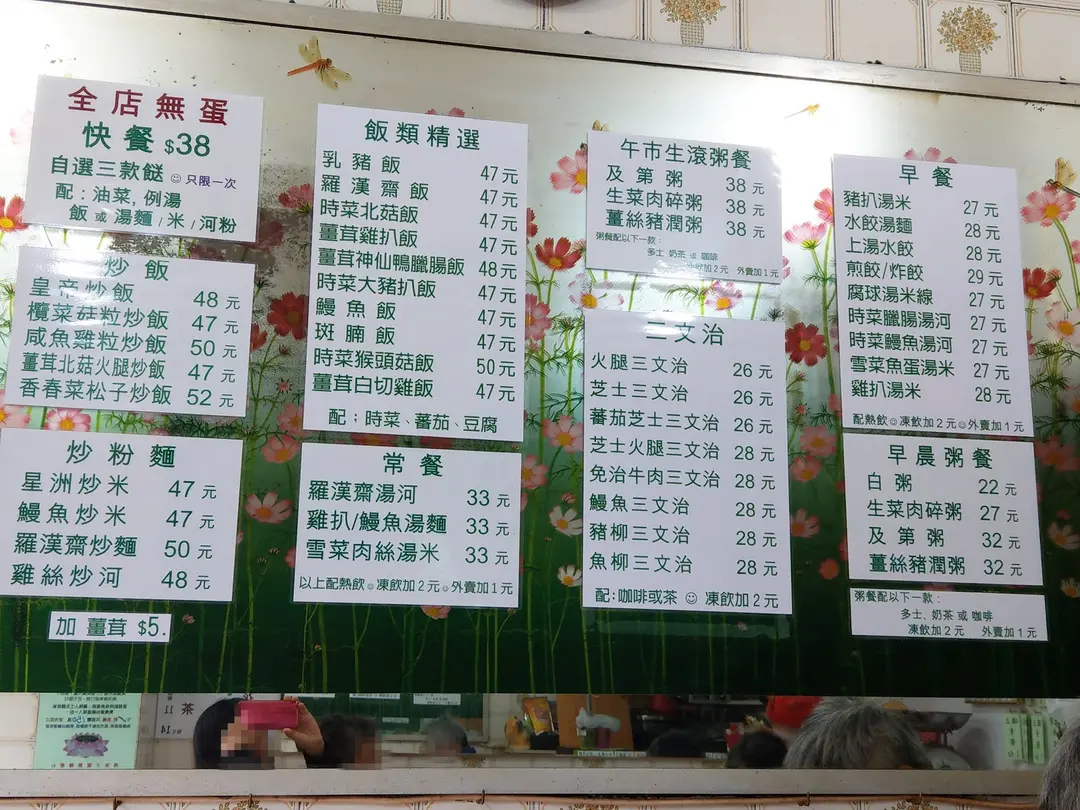 全店無蛋
快餐 $38
自選三款餸 ☺ 只限一次
配：油菜, 例湯
飯 或 湯麵 / 米 / 河粉
炒飯
皇帝炒飯 48 元
欖菜菇粒炒飯 47 元
咸魚雞粒炒飯 50 元
薑茸北菇火腿炒飯 47 元
香春菜松子炒飯 52 元
炒粉麵
星洲炒米 47 元
鰻魚炒米 47 元
羅漢齋炒麵 50 元
雞絲炒河 48 元
加 薑茸 $5.
飯類精選
乳豬飯 47元
羅漢齋飯 47元
時菜北菇飯 47元
薑茸雞扒飯 47元
薑茸神仙鴨臘腸飯 48元
時菜大豬扒飯 47元
鰻魚飯 47元
斑腩飯 47元
時菜猴頭菇飯 50元
薑茸白切雞飯 47元
配；時菜、番茄、豆腐
常餐
羅漢齋湯河 33 元
雞扒/鰻魚湯麵 33 元
雪菜肉絲湯米 33 元
以上配熱飲☺凍飲加2元☺外賣加1元
午市生滾粥餐
及第粥 38 元
生菜肉碎粥 38 元
薑絲豬潤粥 38 元
粥餐配以下一款：
多士 奶茶 或 咖啡
凍飲加2元 外賣加1元
三文治
火腿三文治 26 元
芝士三文治 26 元
蕃茄芝士三文治 26 元
芝士火腿三文治 28 元
免治牛肉三文治 28 元
鰻魚三文治 28 元
豬柳三文治 28 元
魚柳三文治 28 元
配:咖啡或茶 ☺ 凍飲加2元
早餐
豬扒湯米 27 元
水餃湯麵 28 元
上湯水餃 28 元
煎餃/炸餃 29 元
腐球湯米線 27 元
時菜臘腸湯河 27 元
時菜鰻魚湯河 27 元
雪菜魚蛋湯米 27 元
雞扒湯米 28 元
配熱飲☺凍飲加2元☺外賣加1元
早晨粥餐
白粥 22 元
生菜肉碎粥 27 元
及第粥 32 元
薑絲豬潤粥 32 元
粥餐配以下一款：
多士、奶茶 或 咖啡
凍飲加2元 外賣加1元